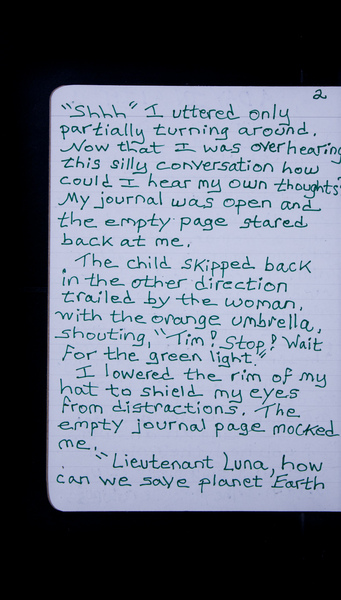 2
"Shhh" I uttered only
partially turning around.
Now that I was overhearing
this silly conversation how
could I hear my own thoughts?
My journal was open and
the empty page stared
back at me.
The child skipped back
in the other direction
trailed by the woman,
with the orange umbrella,
shouting, "Tim! Stop! Wait
for the green light."
I lowered the rim of my
hat to shield my eyes
from distractions. The
empty journal page mocked
me.
"Lieutenant Luna, how
can we save planet Earth